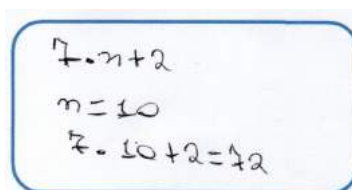 7·n+2
n=10
7·10+2=72